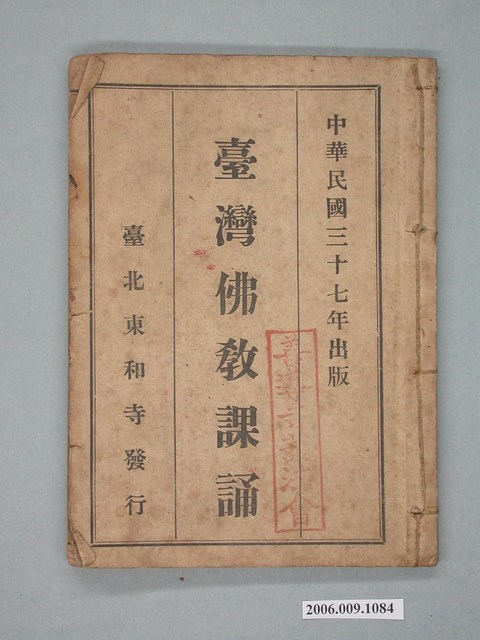 中華民國三十七年出版
臺灣佛教課誦
臺北東和寺發行
會
2006.009.1084